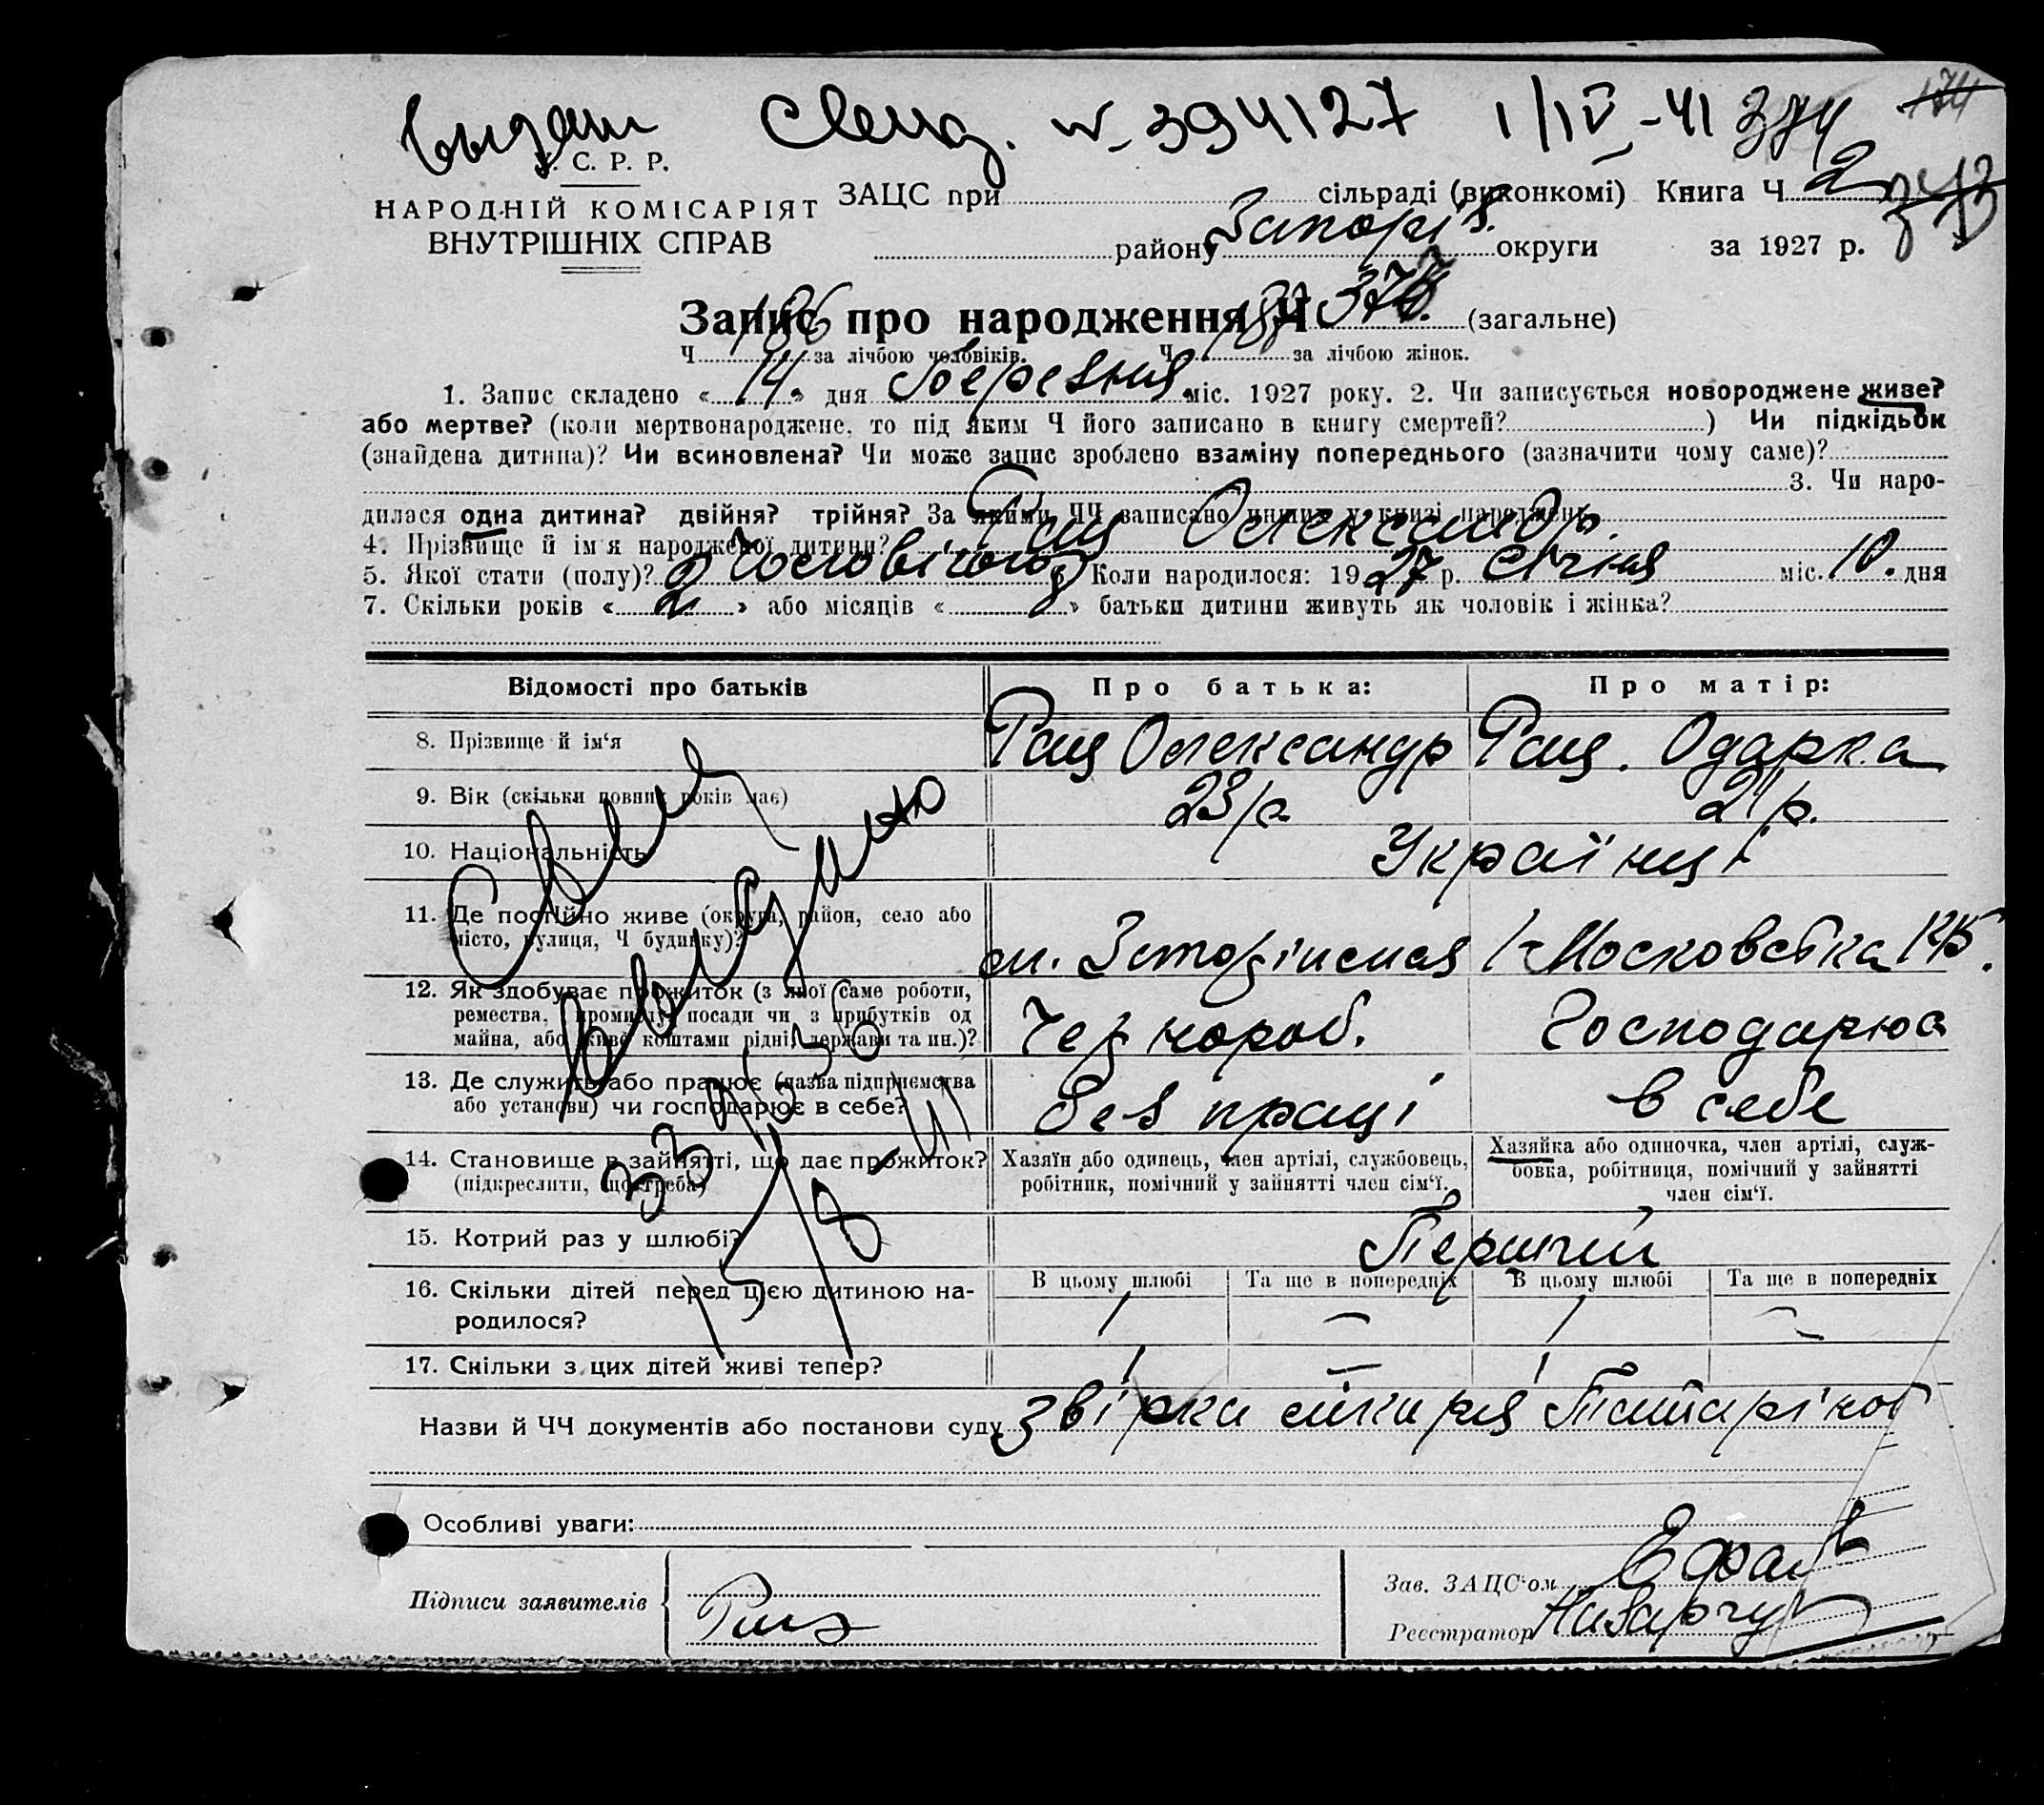 выдан Свид. № 394127 1/IV-41 374 174
У. С. Р. Р.
НАРОДНІЙ КОМІСАРІЯТ
ВНУТРІШНІХ СПРАВ
ЗАЦС при сільраді (виконкомі) Книга Ч 2
району Запоріз. округи за 1927 р.
Запис про народження Ч (загальне)
Ч 186 за лічбою чоловіків. Ч за лічбою жінок.
1. Запис складено « 14 » дня березня міс. 1927 року. 2. Чи записується новороджене живе?
або мертве? (коли мертвонароджене, то під яким Ч його записано в книгу смертей? ) Чи підкідьок
(знайдена дитина)? Чи всиновлена? Чи може запис зроблено взаміну попереднього (зазначити чому саме)?
3. Чи наро-
дилася одна дитина? двійня? трійня? За якими ЧЧ записано инших у книзі народжень
4. Прізвище й ім'я народженої дитини? Рац Олександр.
5. Якої стати (полу)? Чоловічого 6. Коли народилося: 1927 р. січня міс. 10. дня
7. Скільки років « 2 » або місяців « » батьки дитини живуть як чоловік і жінка?
Відомості про батьків Про батька: Про матір:
8. Прізвище й ім'я Рац Олександр Рац. Одарка
9. Вік (скільки повних років має) 23 р. 21 р.
10. Національність Українці
11. Де постійно живе (округа, район, село або
місто, вулиця, Ч будинку)? Московська
12. Як здобуває прожиток (з якої саме роботи,
ремества, промислу, посади чи з прибутків од
майна, або живе коштами рідні, держави та ин.)? Чорнороб. Господарює
13. Де служить або працює (назва підприємства
або установи) чи господарює в себе? без праці в себе
14. Становище в зайнятті, що дає прожиток?
(підкреслити, що треба)
Хазяїн або одинець, член артілі, службовець,
робітник, помічний у зайнятті член сім'ї.
Хазяйка або одиночка, член артілі, служ-
бовка, робітниця, помічний у зайнятті
член сім'ї.
15. Котрий раз у шлюбі? Перший
16. Скільки дітей перед цією дитиною на-
родилося?
В цьому шлюбі Та ще в попередніх В цьому шлюбі Та ще в попередніх
1 — 1 —
17. Скільки з цих дітей живі тепер? 1 — 1
Назви й ЧЧ документів або постанови суду Звірка
Особливі уваги:
Підписи заявителів Рац
Зав. ЗАЦС'ом
Реєстратор
Свид
выдано